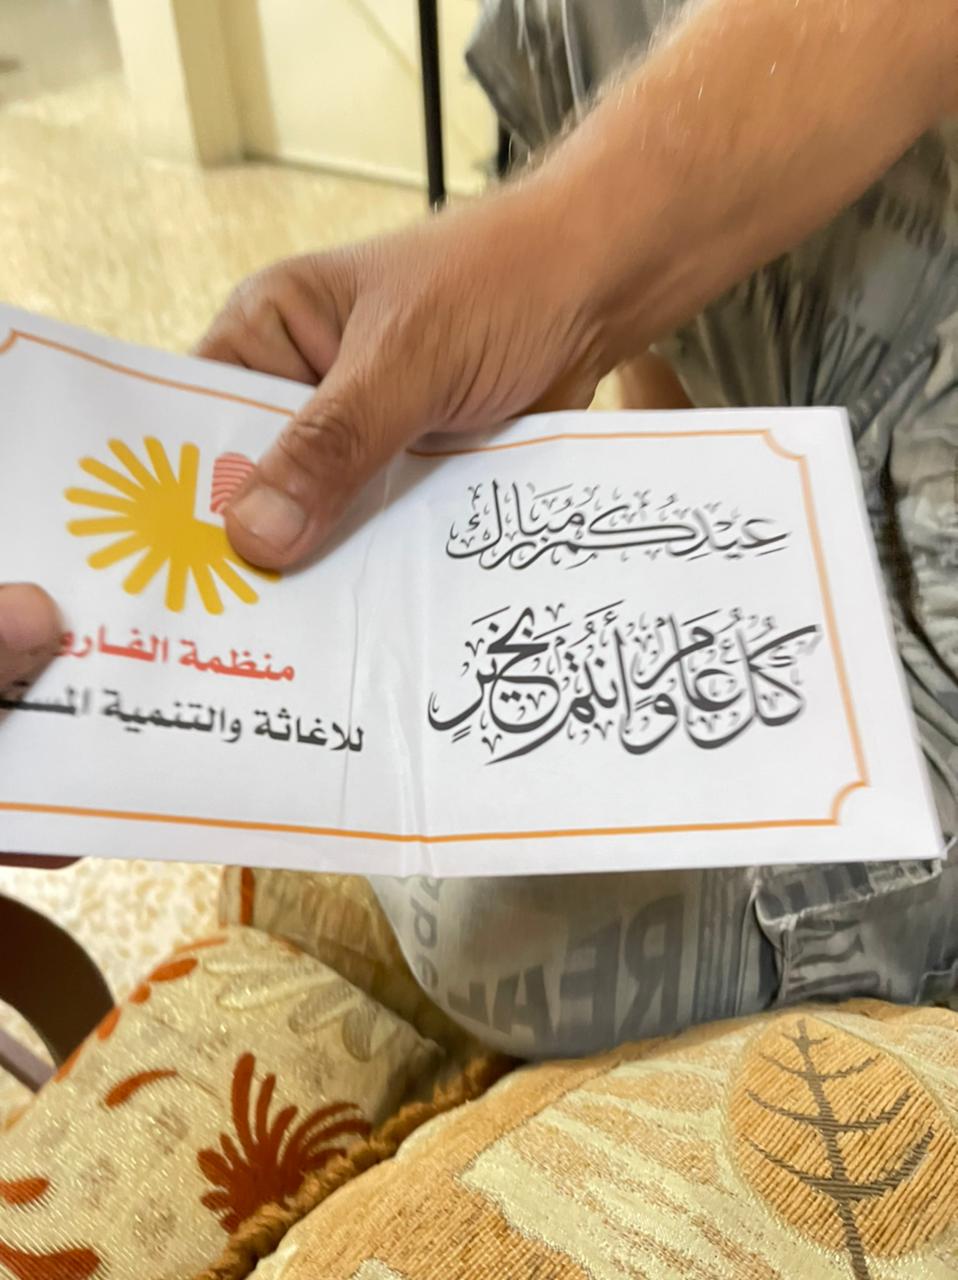 عِيْدِكُم مُبَارَك
كُلُّ عَامٍ وَأَنْتُمْ بِخَيْرٍ
منظمة
للاغاثة والتنمية
REAL